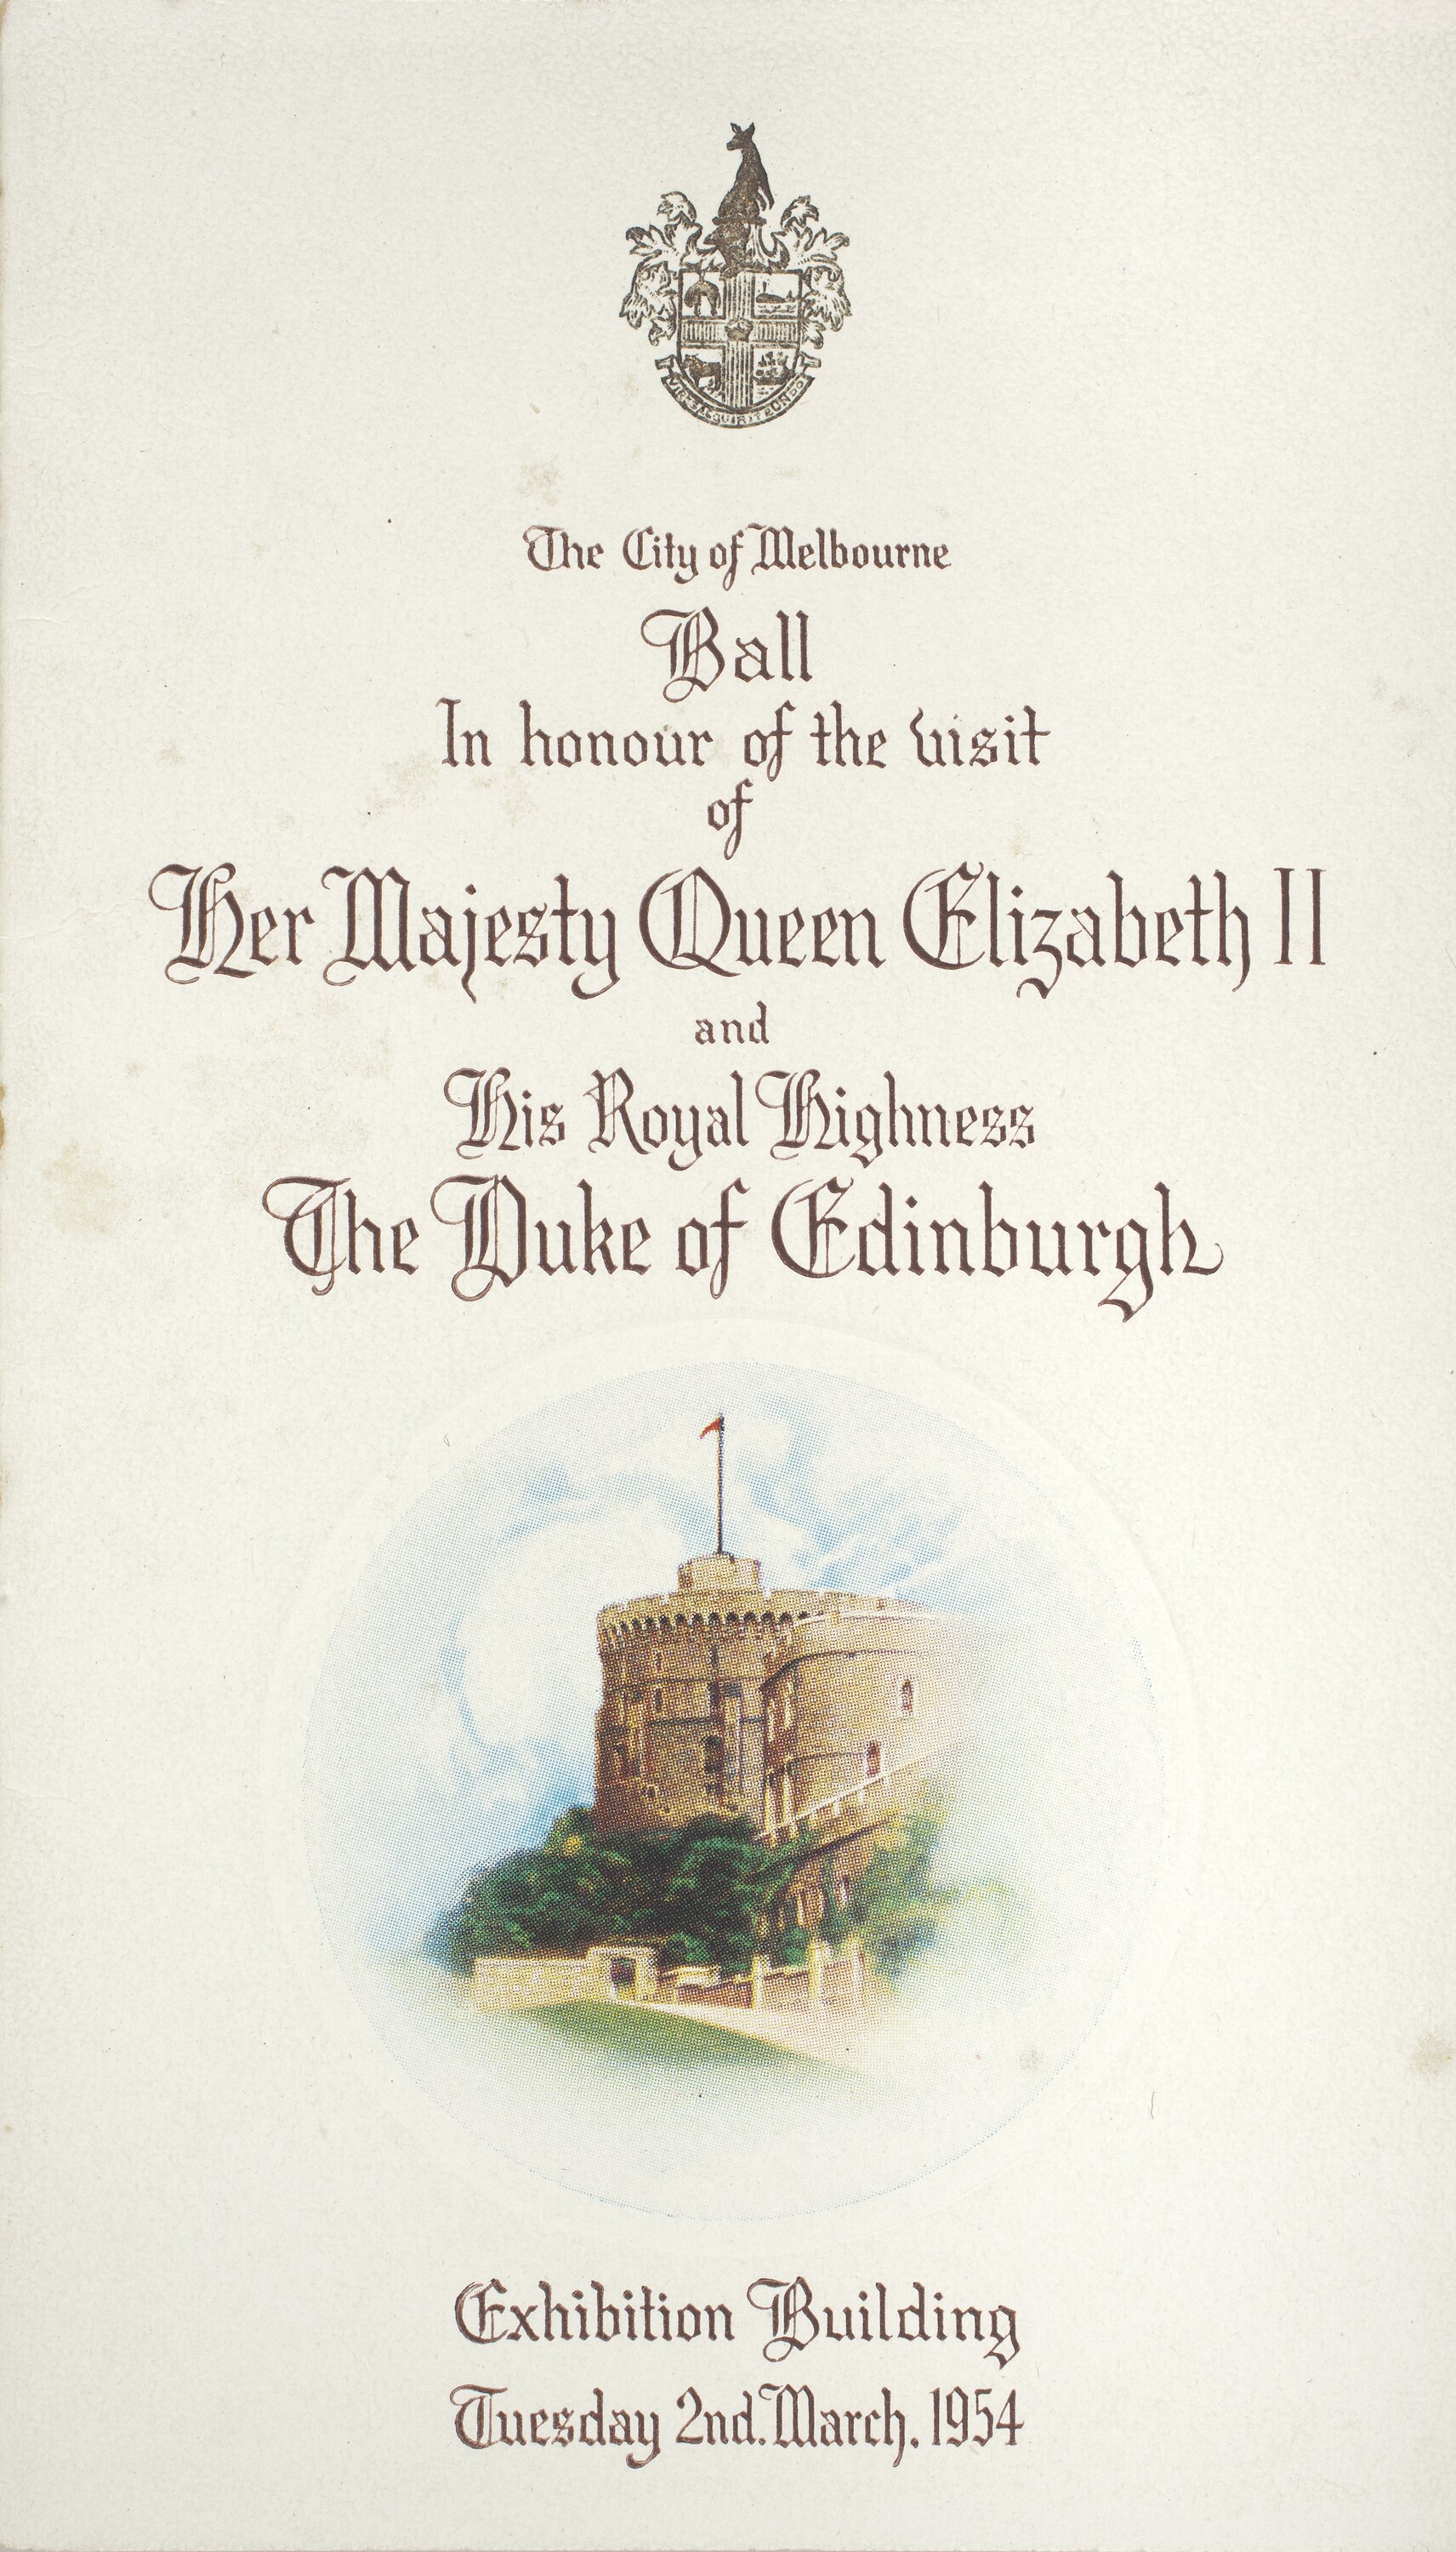 The City of Melbourne
Ball
In honour of the visit
of
Her Majesty Queen Elizabeth II
and
His Royal Highness
The Duke of Edinburgh
Exhibition Building
Tuesday 2nd. March. 1954